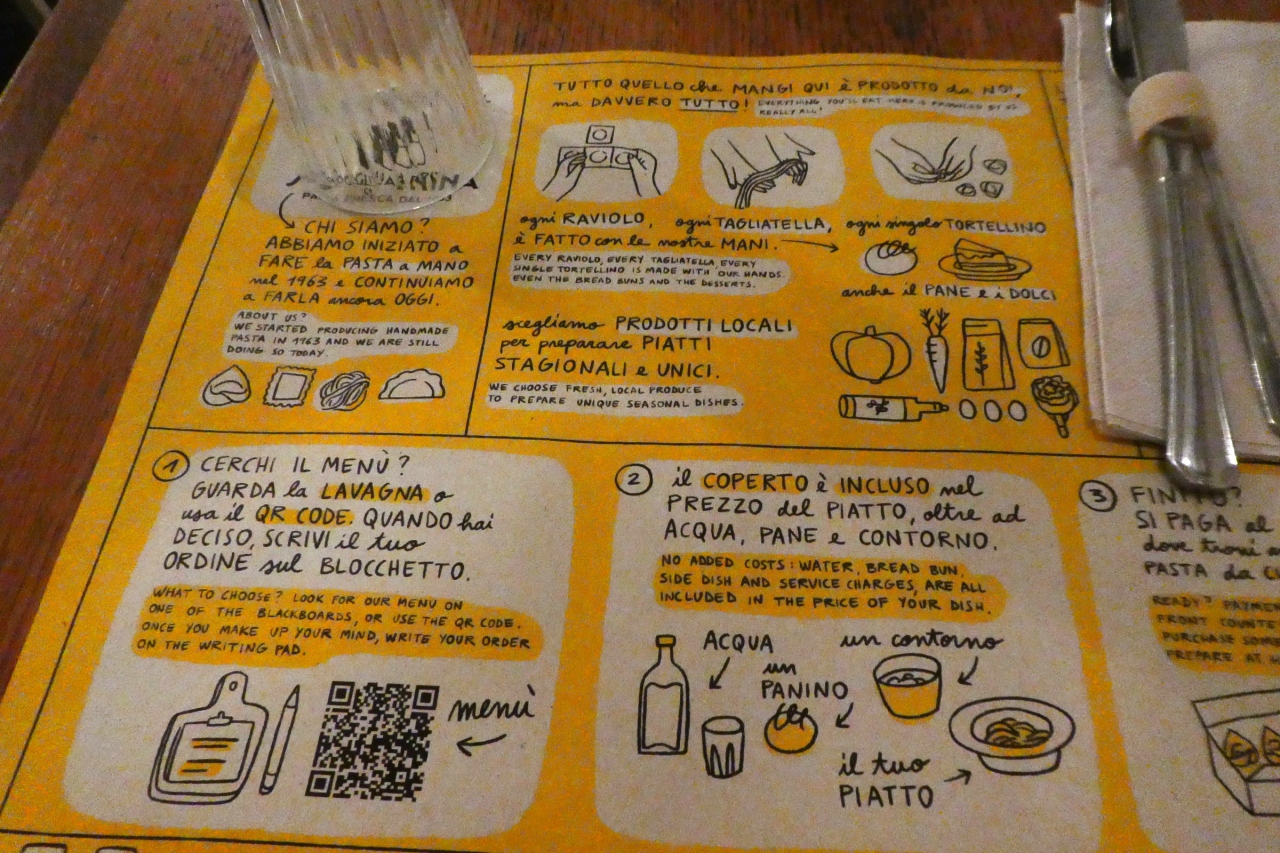 PASTA FRESCA DAL
CHI SIAMO?
ABBIAMO INIZIATO a
FARE la PASTA a MANO
nel 1963 e CONTINUIAMO
a FARLA ancora OGGI.
ABOUT US?
WE STARTED PRODUCING HANDMADE
PASTA IN 1963 AND WE ARE STILL
DOING SO TODAY.
TUTTO QUELLO che MANGI QUI è PRODOTTO da NOI,
ma DAVVERO TUTTO! EVERYTHING YOU'LL EAT HERE IS PRODUCED BY US
REALLY ALL!
ogni RAVIOLO, ogni TAGLIATELLA, ogni singolo TORTELLINO
è FATTO con le nostre MANI.
EVERY RAVIOLO, EVERY TAGLIATELLA, EVERY
SINGLE TORTELLINO IS MADE WITH OUR HANDS.
EVEN THE BREAD BUNS AND THE DESSERTS.
anche il PANE e i DOLCI
scegliamo PRODOTTI LOCALI
per preparare PIATTI
STAGIONALI e UNICI.
WE CHOOSE FRESH, LOCAL PRODUCE
TO PREPARE UNIQUE SEASONAL DISHES.
1 CERCHI IL MENÙ?
GUARDA la LAVAGNA o
usa il QR CODE. QUANDO hai
DECISO, SCRIVI il tuo
ORDINE sul BLOCCHETTO.
WHAT TO CHOOSE? LOOK FOR OUR MENU ON
ONE OF THE BLACKBOARDS, OR USE THE QR CODE.
ONCE YOU MAKE UP YOUR MIND, WRITE YOUR ORDER
ON THE WRITING PAD.
menù
2 il COPERTO è INCLUSO nel
PREZZO del PIATTO, oltre ad
ACQUA, PANE e CONTORNO.
NO ADDED COSTS: WATER, BREAD BUN,
SIDE DISH AND SERVICE CHARGES, ARE ALL
INCLUDED IN THE PRICE OF YOUR DISH.
ACQUA
un
PANINO
un contorno
il tuo
PIATTO
3 FINITO?
SI PAGA al
dove trovi a
PASTA da
READY? PAYMEN
FRONT COUNTE
PURCHASE SOME
PREPARE AT H